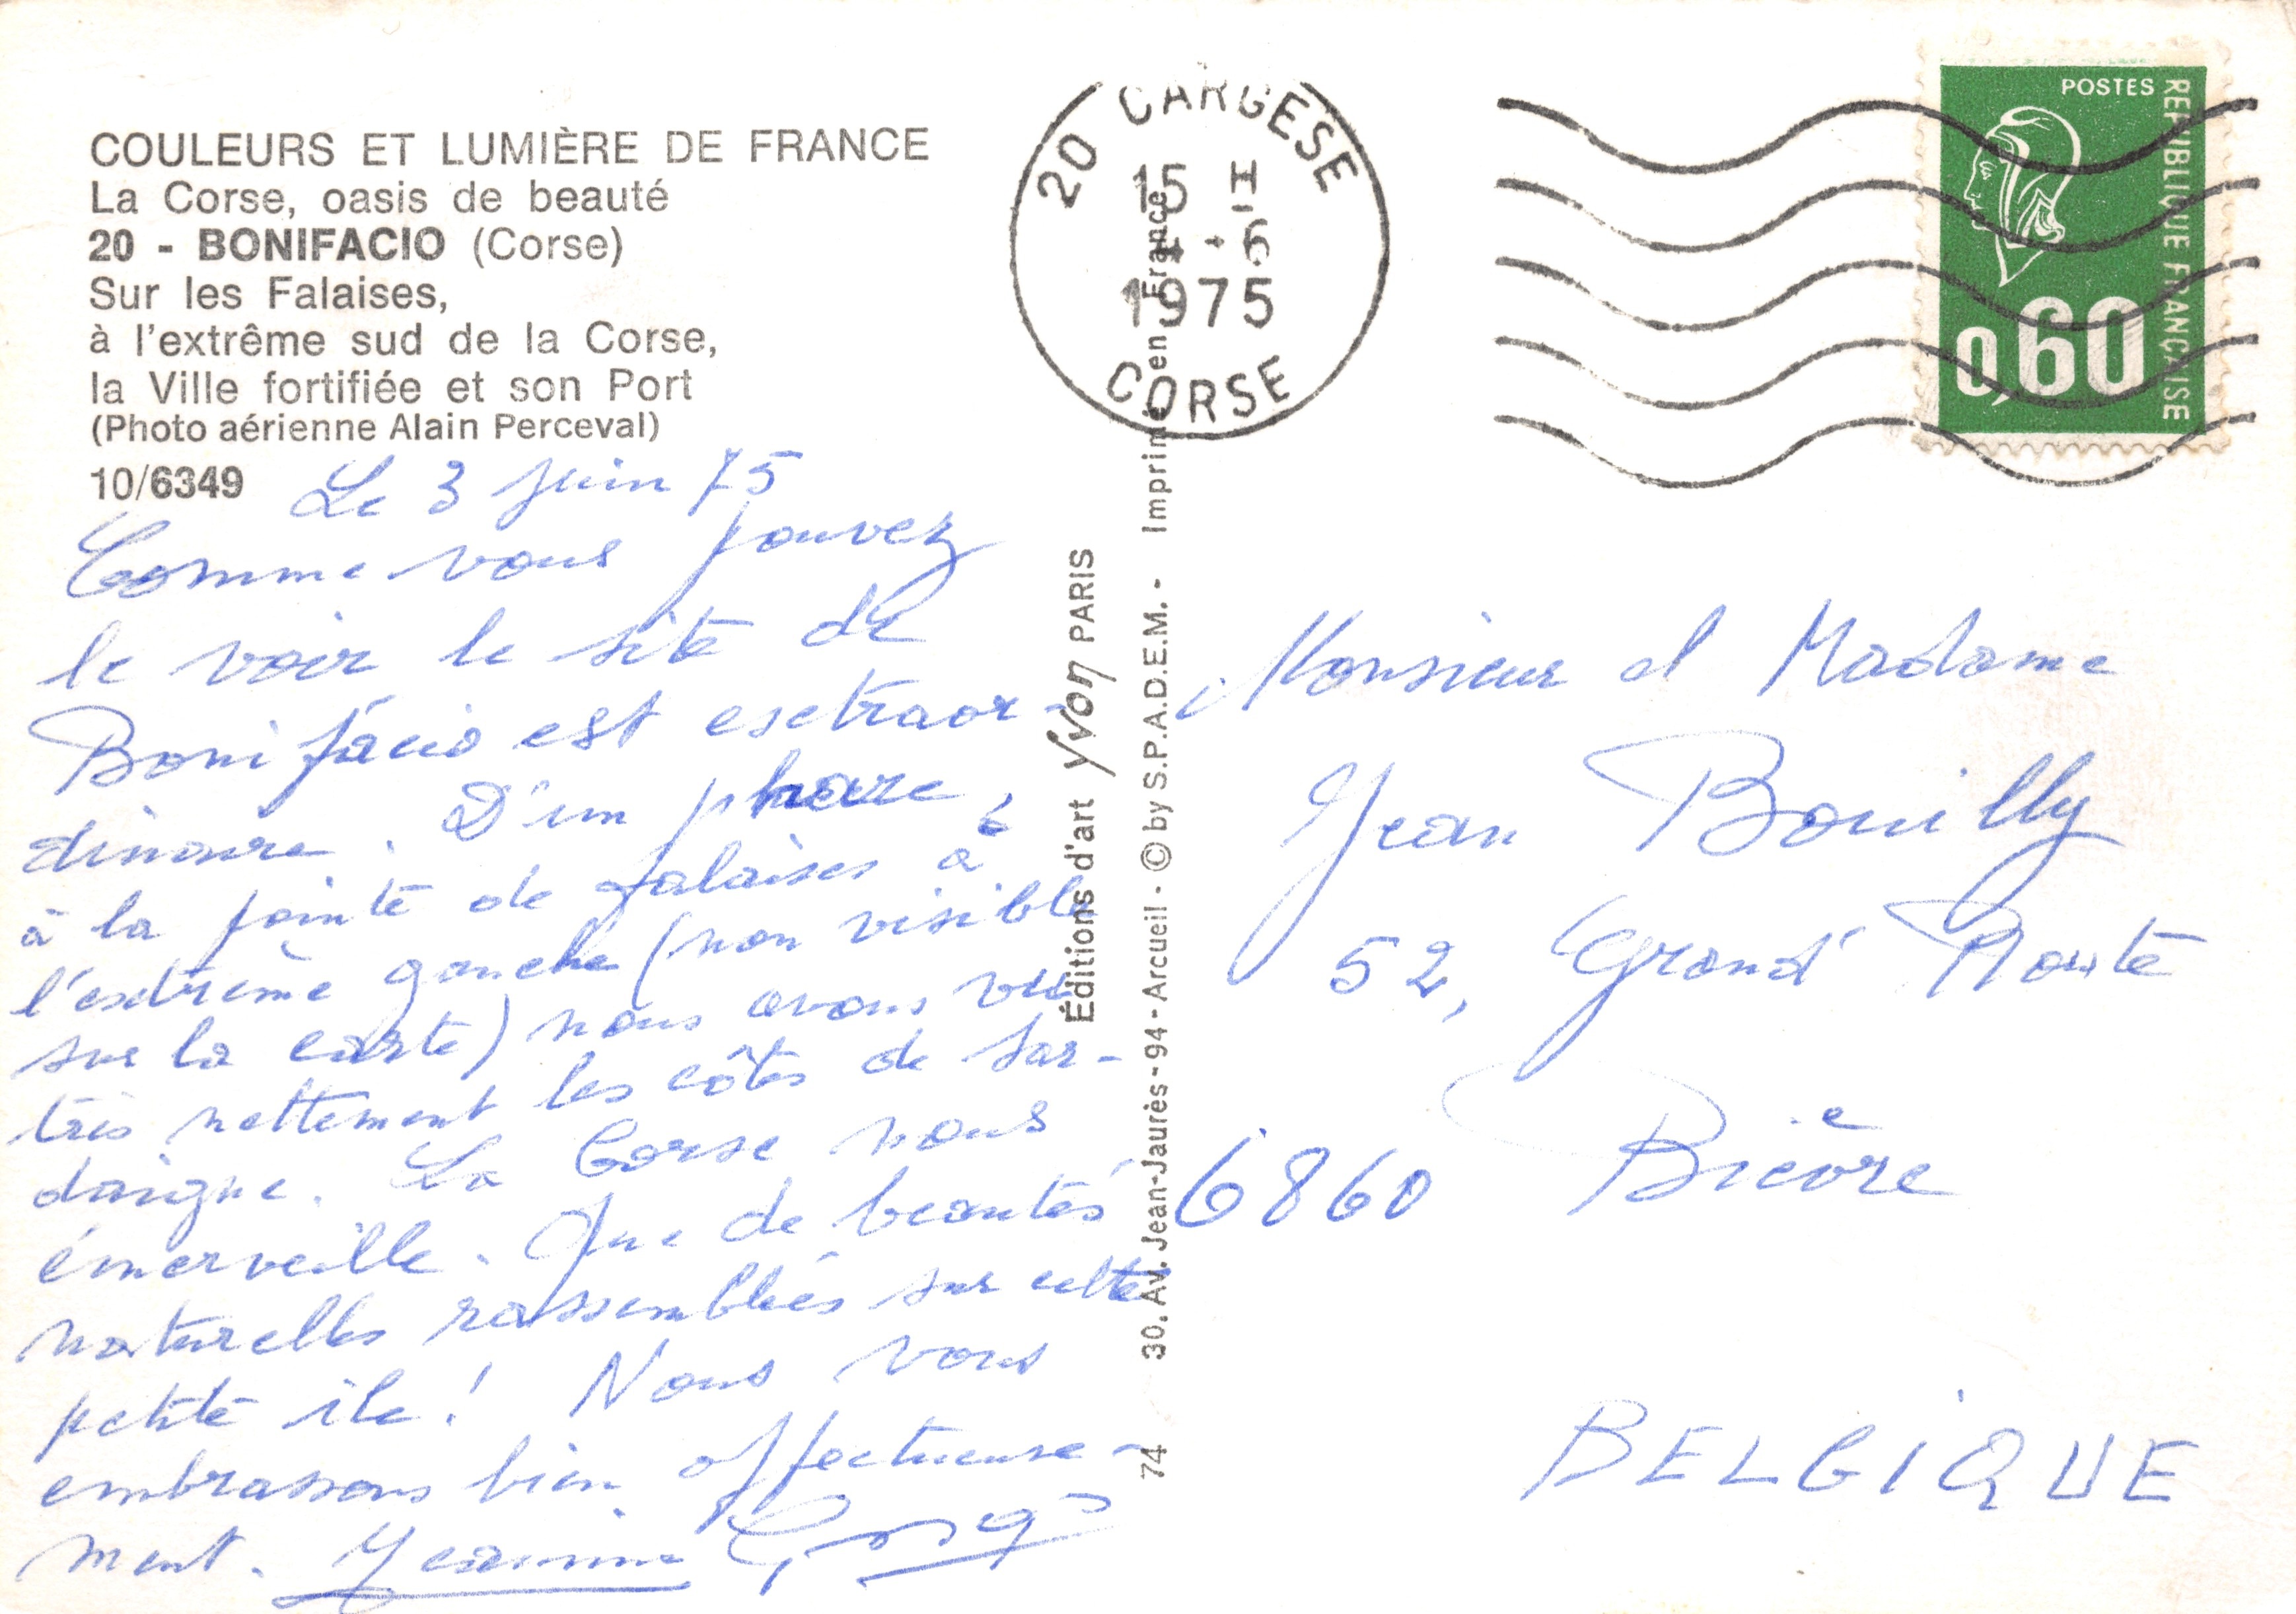 COULEURS ET LUMIÈRE DE FRANCE
La Corse, oasis de beauté
20 - BONIFACIO (Corse)
Sur les Falaises,
à l'extrême sud de la Corse,
la Ville fortifiée et son Port
(Photo aérienne Alain Perceval)
10/6349
Le 3 juin 75
Comme vous pouvez
le voir le site de
Bonifacio est extraor-
dinaire. D'un phare,
à la pointe de falaises à
l'extrême gauche (non visible
sur la carte) nous avons vu
très nettement les côtes de Sar-
daigne. La Corse nous
émerveille. Que de beautés
naturelles rassemblées sur cette
petite île! Nous vous
embrassons bien affectueuse-
ment. Jeannine
Éditions d'art Yvon PARIS
30, Av. Jean-Jaurès - 94 - Arcueil - © by S.P.A.D.E.M. - Imprimé en France
74
20 CARGESE
15 H
-6
1975
CORSE
POSTES
REPUBLIQUE FRANÇAISE
0,60
Monsieur et Madame
Jean Bouilly
52, Grand' Route
6860 Bièvre
BELGIQUE